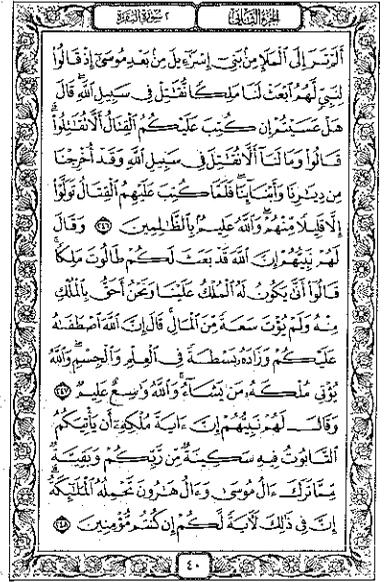 الجزء الثاني
٢ سورة البقرة
أَلَمْ تَرَ إِلَى ٱلْمَلَإِ مِنۢ بَنِىٓ إِسْرَٰٓءِيلَ مِنۢ بَعْدِ مُوسَىٰٓ إِذْ قَالُوا۟
لِنَبِىٍّ لَّهُمُ ٱبْعَثْ لَنَا مَلِكًا نُّقَٰتِلْ فِى سَبِيلِ ٱللَّهِ قَالَ
هَلْ عَسَيْتُمْ إِن كُتِبَ عَلَيْكُمُ ٱلْقِتَالُ أَلَّا تُقَٰتِلُوا۟
قَالُوا۟ وَمَا لَنَآ أَلَّا نُقَٰتِلَ فِى سَبِيلِ ٱللَّهِ وَقَدْ أُخْرِجْنَا
مِن دِيَٰرِنَا وَأَبْنَآئِنَا فَلَمَّا كُتِبَ عَلَيْهِمُ ٱلْقِتَالُ تَوَلَّوْا۟
إِلَّا قَلِيلًا مِّنْهُمْ وَٱللَّهُ عَلِيمٌۢ بِٱلظَّٰلِمِينَ ٢٤٦ وَقَالَ
لَهُمْ نَبِيُّهُمْ إِنَّ ٱللَّهَ قَدْ بَعَثَ لَكُمْ طَالُوتَ مَلِكًا
قَالُوٓا۟ أَنَّىٰ يَكُونُ لَهُ ٱلْمُلْكُ عَلَيْنَا وَنَحْنُ أَحَقُّ بِٱلْمُلْكِ
مِنْهُ وَلَمْ يُؤْتَ سَعَةً مِّنَ ٱلْمَالِ قَالَ إِنَّ ٱللَّهَ ٱصْطَفَىٰهُ
عَلَيْكُمْ وَزَادَهُۥ بَسْطَةً فِى ٱلْعِلْمِ وَٱلْجِسْمِ وَٱللَّهُ
يُؤْتِى مُلْكَهُۥ مَن يَشَآءُ وَٱللَّهُ وَٰسِعٌ عَلِيمٌ ٢٤٧
وَقَالَ لَهُمْ نَبِيُّهُمْ إِنَّ ءَايَةَ مُلْكِهِۦٓ أَن يَأْتِيَكُمُ
ٱلتَّابُوتُ فِيهِ سَكِينَةٌ مِّن رَّبِّكُمْ وَبَقِيَّةٌ
مِّمَّا تَرَكَ ءَالُ مُوسَىٰ وَءَالُ هَٰرُونَ تَحْمِلُهُ ٱلْمَلَٰٓئِكَةُ
إِنَّ فِى ذَٰلِكَ لَءَايَةً لَّكُمْ إِن كُنتُم مُّؤْمِنِينَ ٢٤٨
٤٠